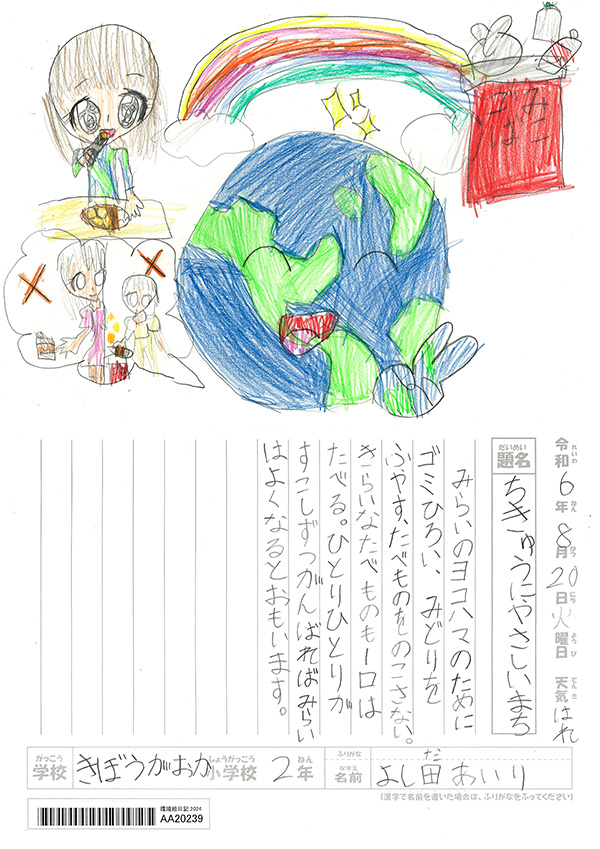 ごみ
ばこ
令和6年8月20日火曜日 天気はれ
れいわ ねん がつ にち ようび てんき
だいめい
題名 ちきゅうにやさしいまち
みらいのヨコハマのために
ゴミひろい、みどりを
ふやす、たべものをのこさない。
きらいなたべものも一口は
たべる。ひとりひとりが
すこしずつがんばればみらい
はよくなるとおもいます。
がっこう しょうがっこう ねん ふりがな だ
学校 きぼうがおか小学校 2年 なまえ 名前 よし田 あいり
(漢字で名前を書いた場合は、ふりがなをふってください)
環境絵日記 2024
AA20239